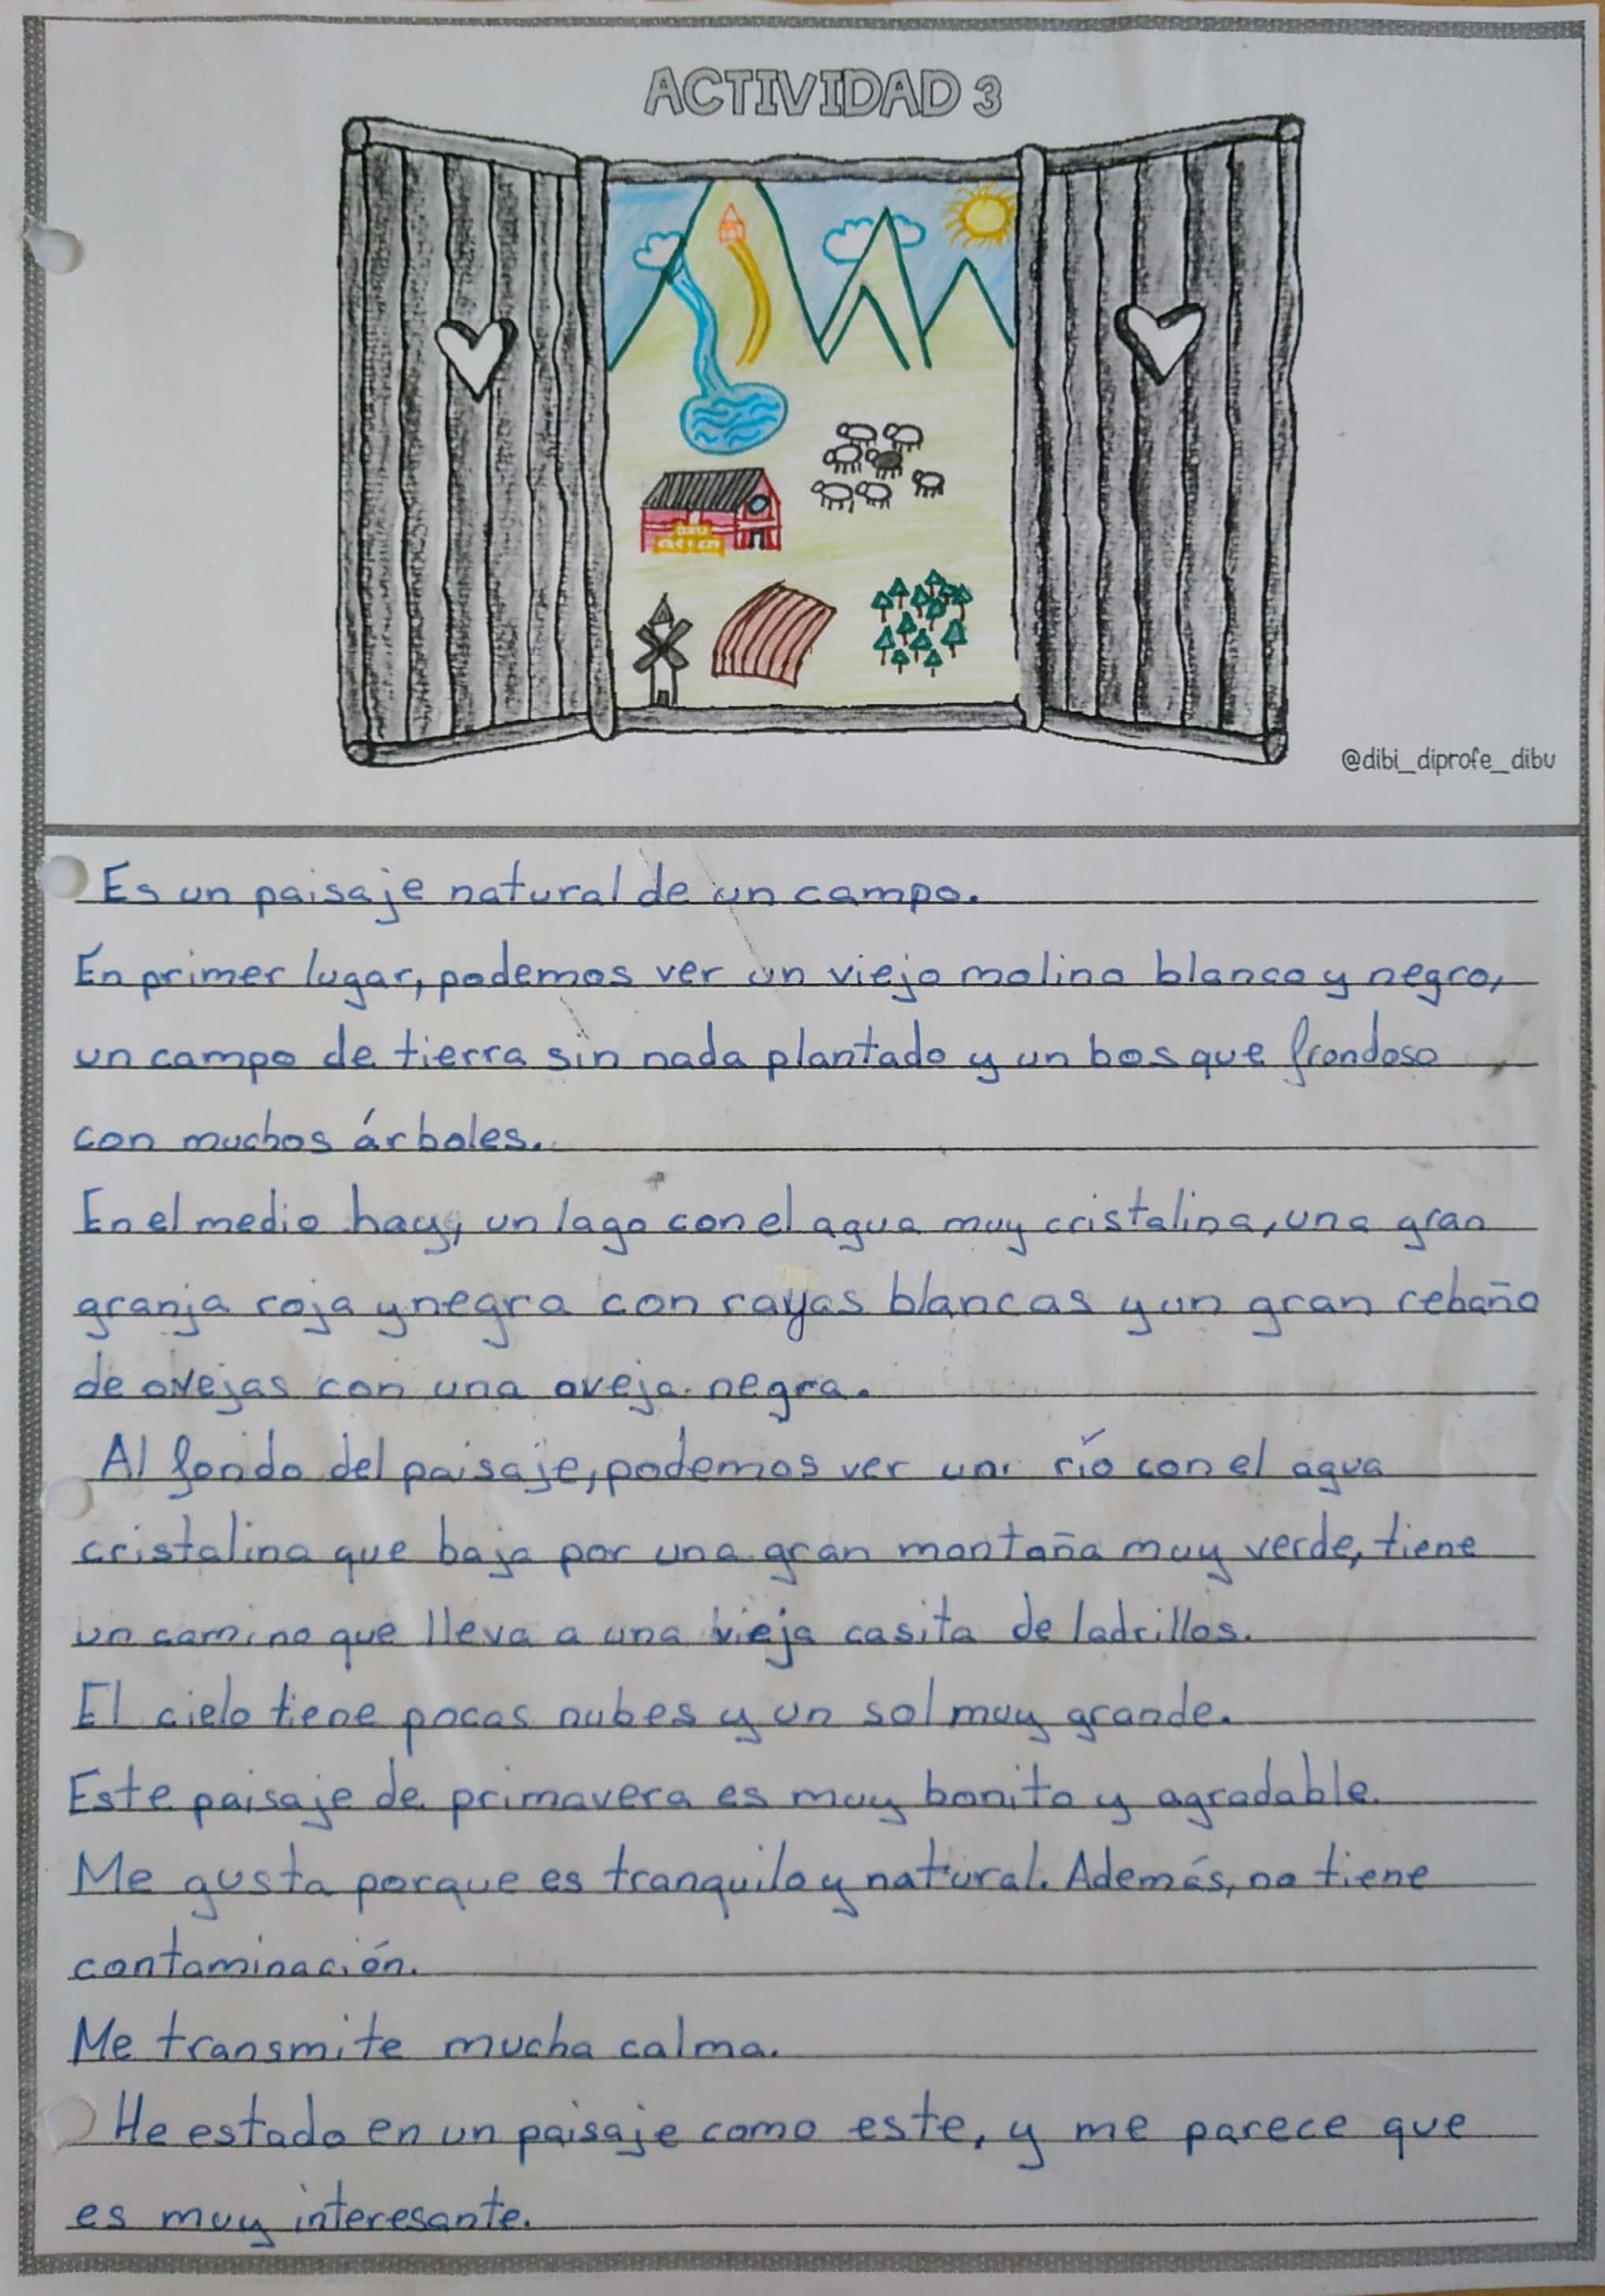 ACTIVIDAD 3
@dibi_diprofe_dibu
Es un paisaje natural de un campo.
En primer lugar, podemos ver un viejo molino blanco y negro,
un campo de tierra sin nada plantado y un bosque frondoso
con muchos árboles.
En el medio hay, un lago con el agua muy cristalina, una gran
granja roja y negra con rayas blancas y un gran rebaño
de ovejas con una oveja negra.
Al fondo del paisaje, podemos ver un río con el agua
cristalina que baja por una gran montaña muy verde, tiene
un camino que lleva a una vieja casita de ladrillos.
El cielo tiene pocas nubes y un sol muy grande.
Este paisaje de primavera es muy bonito y agradable.
Me gusta porque es tranquilo y natural. Además, no tiene
contaminación.
Me transmite mucha calma.
He estado en un paisaje como este, y me parece que
es muy interesante.